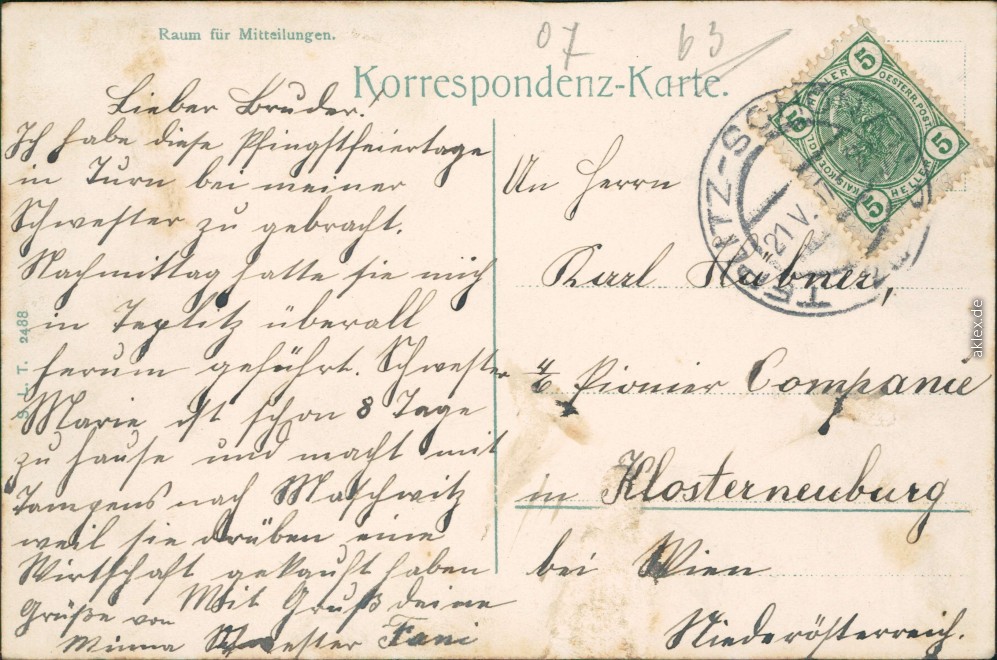 Raum für Mitteilungen.
07 63
Korrespondenz-Karte.
Lieber Bruder!
Ich habe diese Pfingstfeiertage
in Turn bei meiner
Schwester zu gebracht.
Nachmittag hatte sie mich
in Teplitz überall
herum geführt. Schwester
Marie ist schon 8 Tage
zu Hause und macht mit
nach Maschwitz
weil sie drüben eine
Wirtschaft gekauft haben
Mit Gruß deine
Schwester Fani
Grüße von
Minna
An Herrn
Karl Hübner,
4/6 Pionier Companie
in Klosterneuburg
bei Wien
Niederösterreich.
5 HELLER 5 OESTERR. POST 5 HELLER 5
TEPLITZ-SCHÖNAU
21 V.
D. & T. 2488
aklex.de